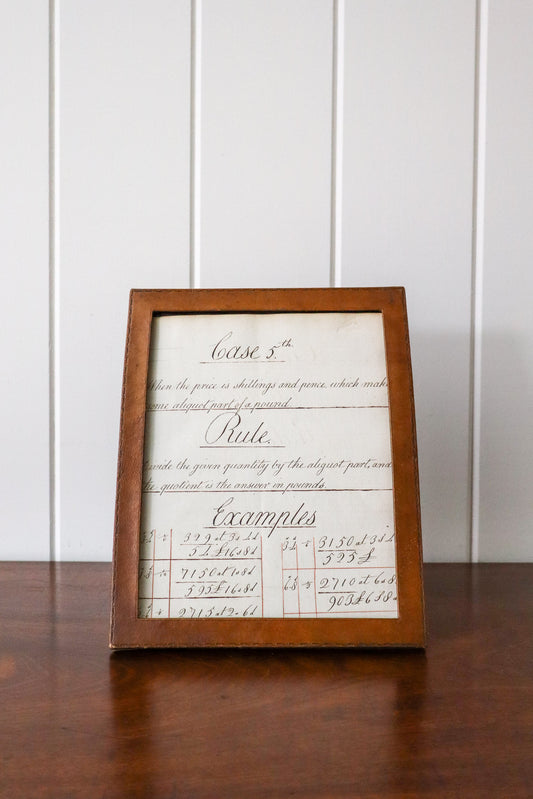 Case 5.th
When the price is shillings and pence which make
some aliquot part of a pound.
Rule.
Divide the given quantity by the aliquot part, and
the quotient is the answer in pounds.
Examples
329 at 3s 4d
54£ 16s 8d
3150 at 3s 4d
525 £
7150 at 1s 8d
595£ 16s 8d
2710 at 6s 8
903£ 6s 8
2715 at 2s 6d